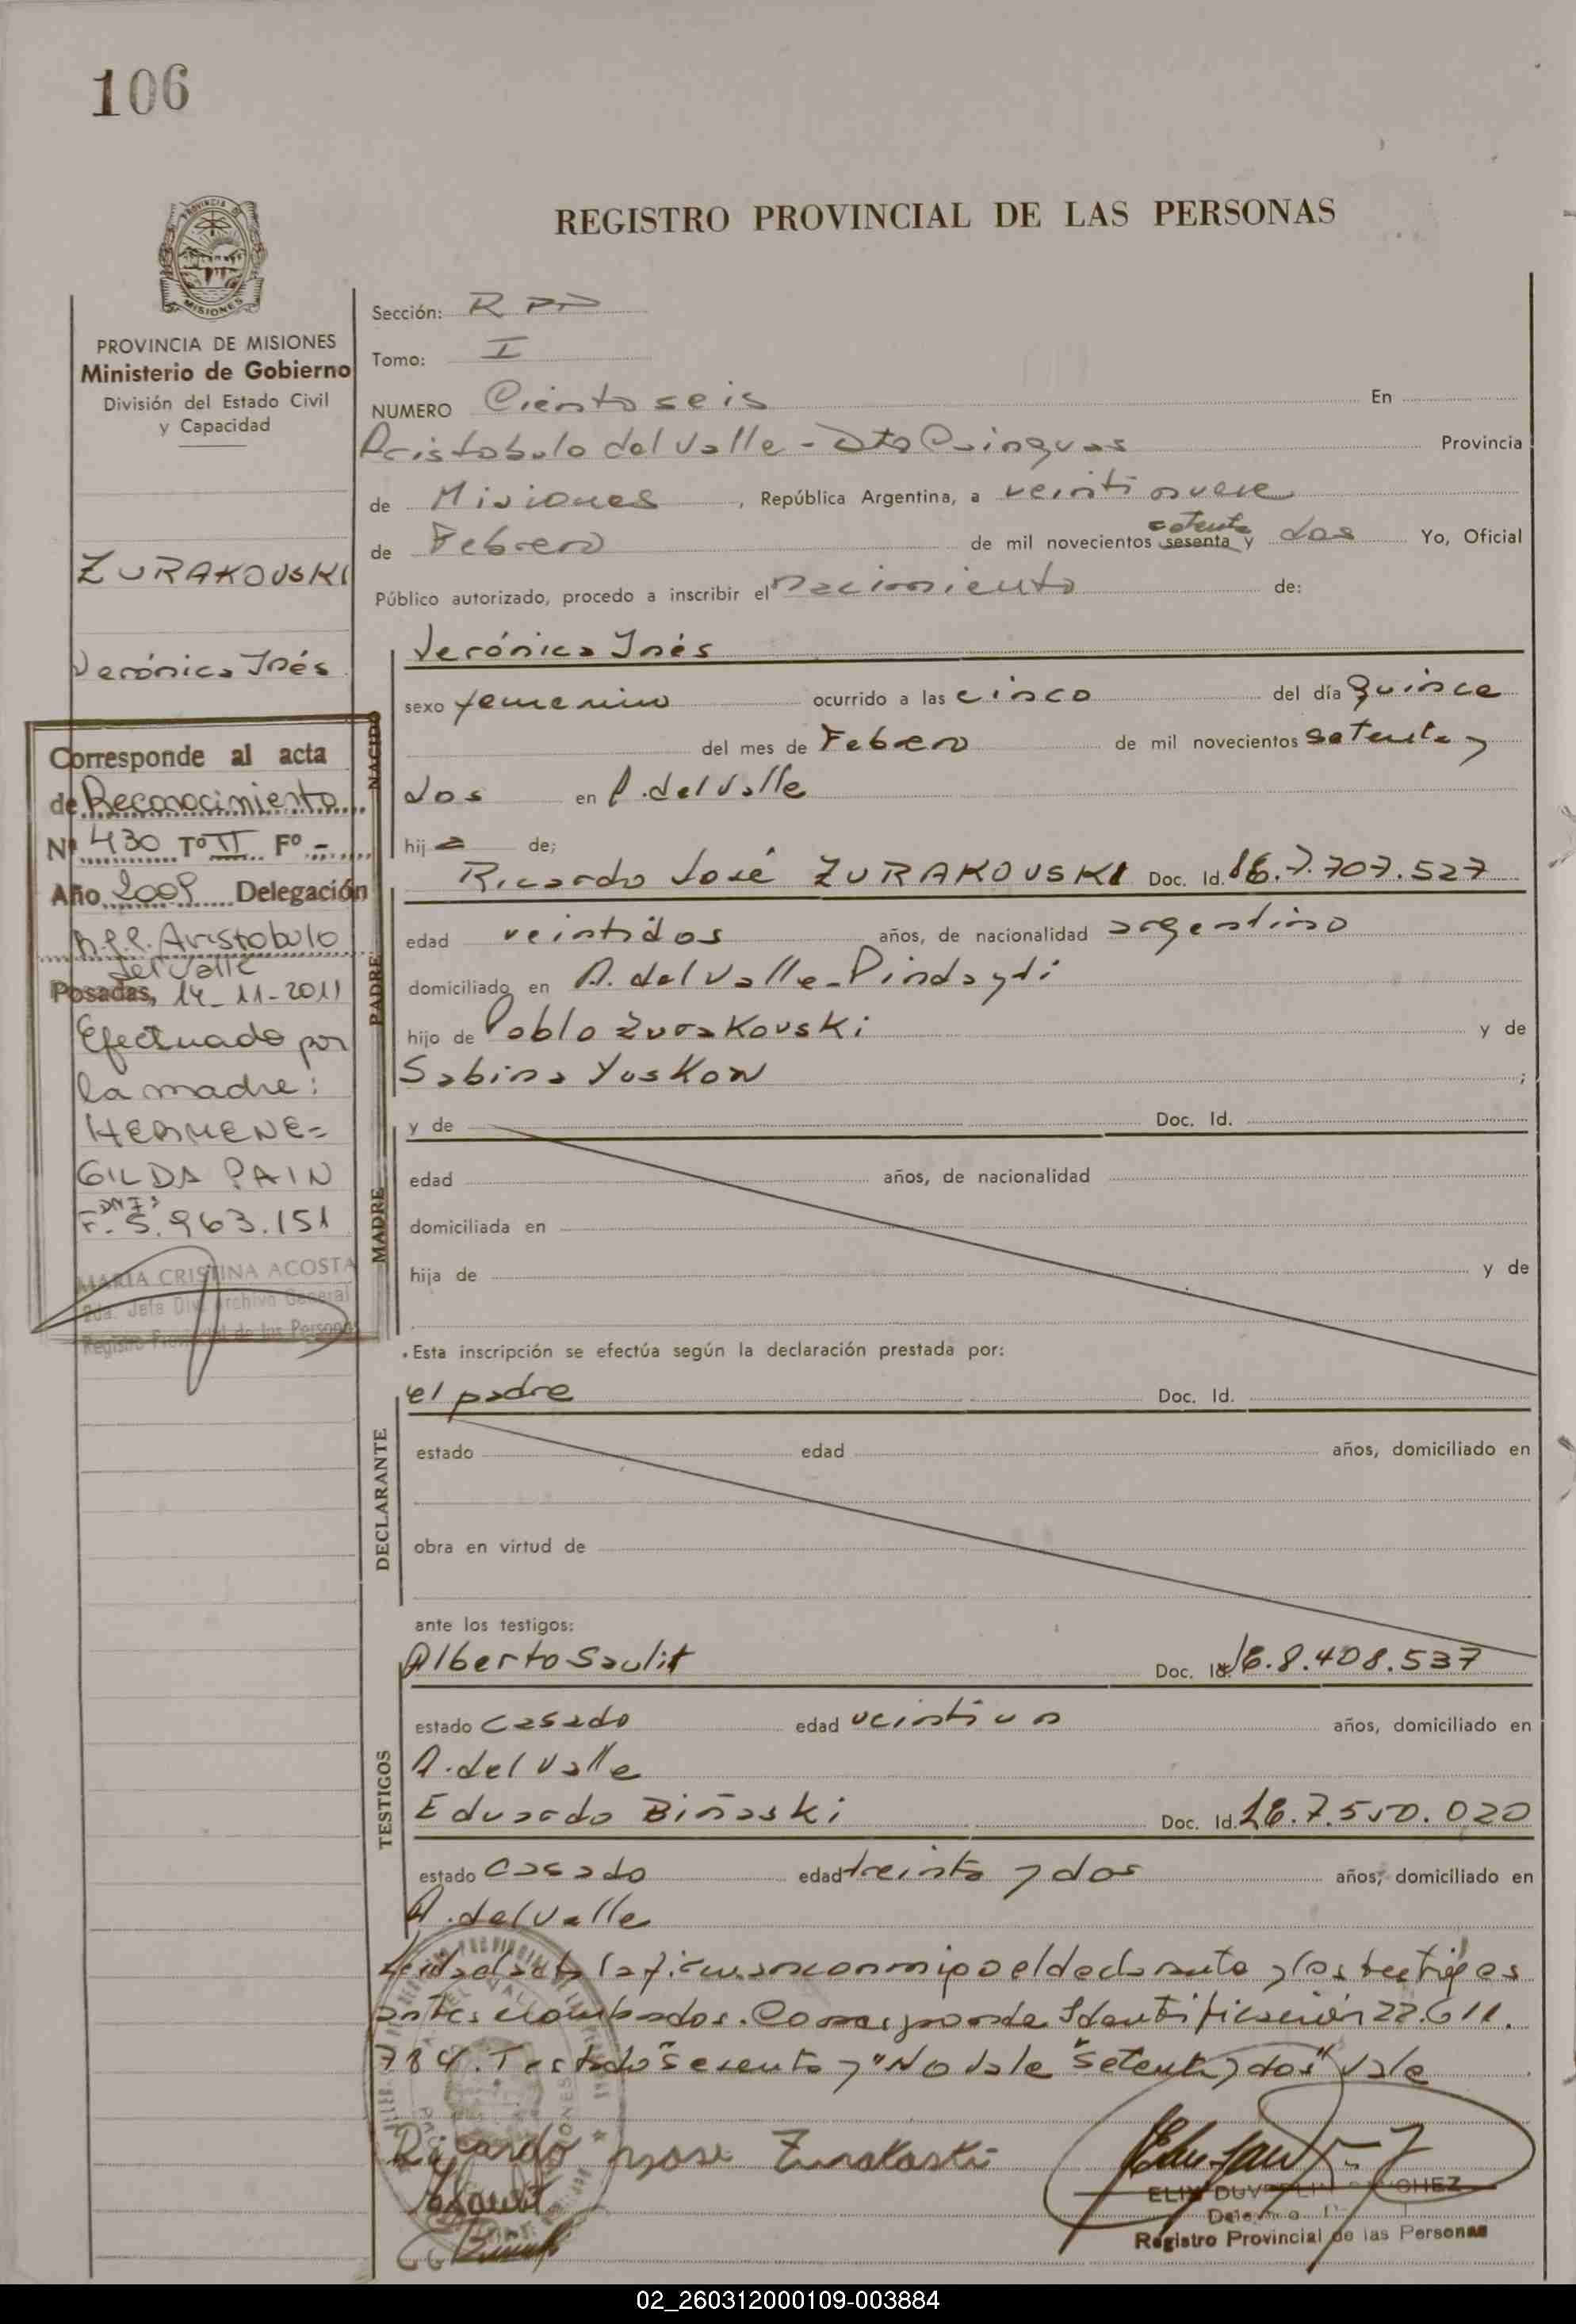 106
REGISTRO PROVINCIAL DE LAS PERSONAS
MISIONES
PROVINCIA DE MISIONES
Ministerio de Gobierno
División del Estado Civil
y Capacidad
ZURAKOUSKI
Verónica Inés
Corresponde al acta
de Reconocimiento
Nº 430 Tº II Fº -
Año 2009 Delegación
Aristobulo
del Valle
Posadas, 14-11-2011
Efectuado por
la madre:
HERMENE=
GILDA PAIN
5.963.151
MARIA CRISTINA ACOSTA
2da. Jefa Div. Archivo General
Registro Provincial de las Personas
Sección:
Tomo: I
NUMERO Ciento seis En
Aristobulo del Valle - Dto Cainguas Provincia
de Misiones, República Argentina, a veintinueve
de Febrero de mil novecientos sesenta setenta y dos Yo, Oficial
Público autorizado, procedo a inscribir el nacimiento de:
NACIDO
Verónica Inés
sexo femenino ocurrido a las cinco del día quince
del mes de Febrero de mil novecientos setenta y
dos en A. del Valle
hija de;
PADRE
Ricardo José ZURAKOUSKI Doc. Id. 7.707.527
edad veintidos años, de nacionalidad argentino
domiciliado en A. del Valle - Pindayti
hijo de Pablo Zurakouski y de
Sabina Yuskow ;
MADRE
y de Doc. Id.
edad años, de nacionalidad
domiciliada en
hija de y de
Esta inscripción se efectúa según la declaración prestada por:
DECLARANTE
el padre Doc. Id.
estado edad años, domiciliado en
obra en virtud de
ante los testigos:
TESTIGOS
Alberto Saulit Doc. Id. 8.408.537
estado casado edad veintiun años, domiciliado en
A. del Valle
Eduardo Biñaski Doc. Id. 7.550.020
estado casado edad treinta y dos años, domiciliado en
A. del Valle
Leida el acta la firman conmigo el declarante y los testigos
antes nombrados. Corresponde Identificación 22.611.
784. Testado "sesenta y" No vale "setenta y dos" vale
Ricardo Jose Zurakoski
Delegado
Registro Provincial de las Personas
02_260312000109-003884